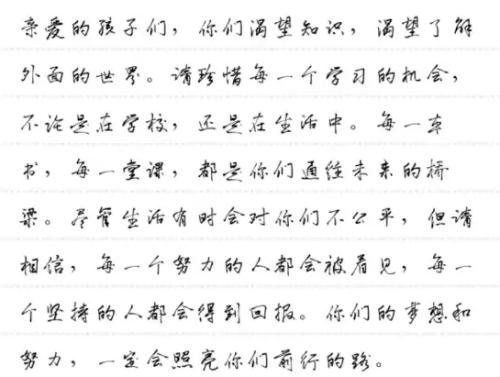 亲爱的孩子们，你们渴望知识，渴望了解
外面的世界。请珍惜每一个学习的机会，
不论是在学校，还是在生活中。每一本
书，每一堂课，都是你们通往未来的桥
梁。尽管生活有时会对你们不公平，但请
相信，每一个努力的人都会被看见，每一
个坚持的人都会得到回报。你们的梦想和
努力，一定会照亮你们前行的路。